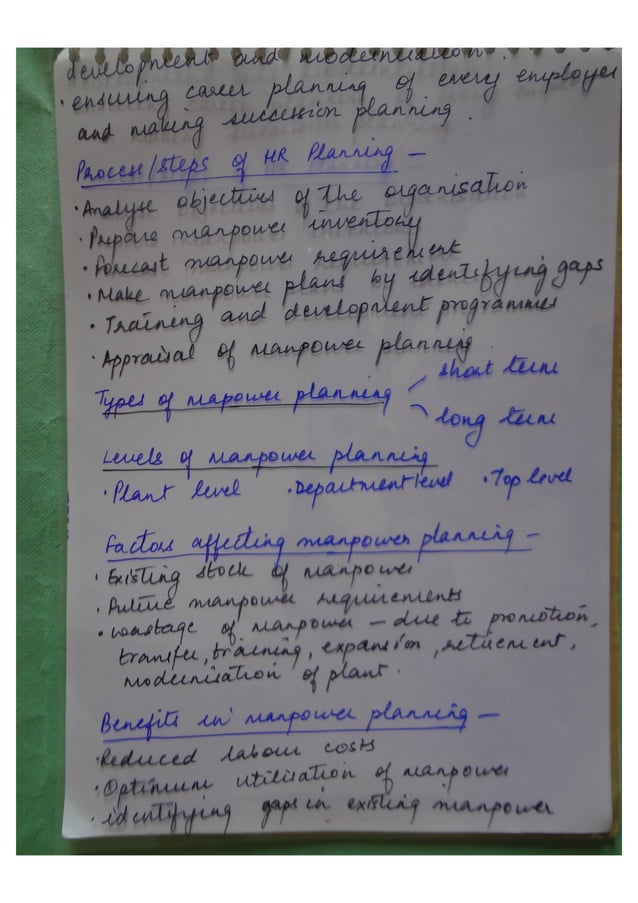 development and modernisation.
· ensuring career planning of every employee
and making succession planning.
Process/steps of HR Planning –
· Analyse objectives of the organisation
· Prepare manpower inventory
· Forecast manpower requirement
· Make manpower plans by identifying gaps
· Training and development programmes
· Appraisal of manpower planning.
Types of mapower planning
short term
long term
Levels of manpower planning
· Plant level · Department level · Top level
Factors affecting manpower planning –
· Existing stock of manpower
· Future manpower requirements
· wastage of manpower – due to promotion,
transfer, training, expansion, retirement,
modernisation of plant.
Benefits in manpower planning –
· Reduced labour costs
· Optimum utilisation of manpower
· identifying gaps in existing manpower